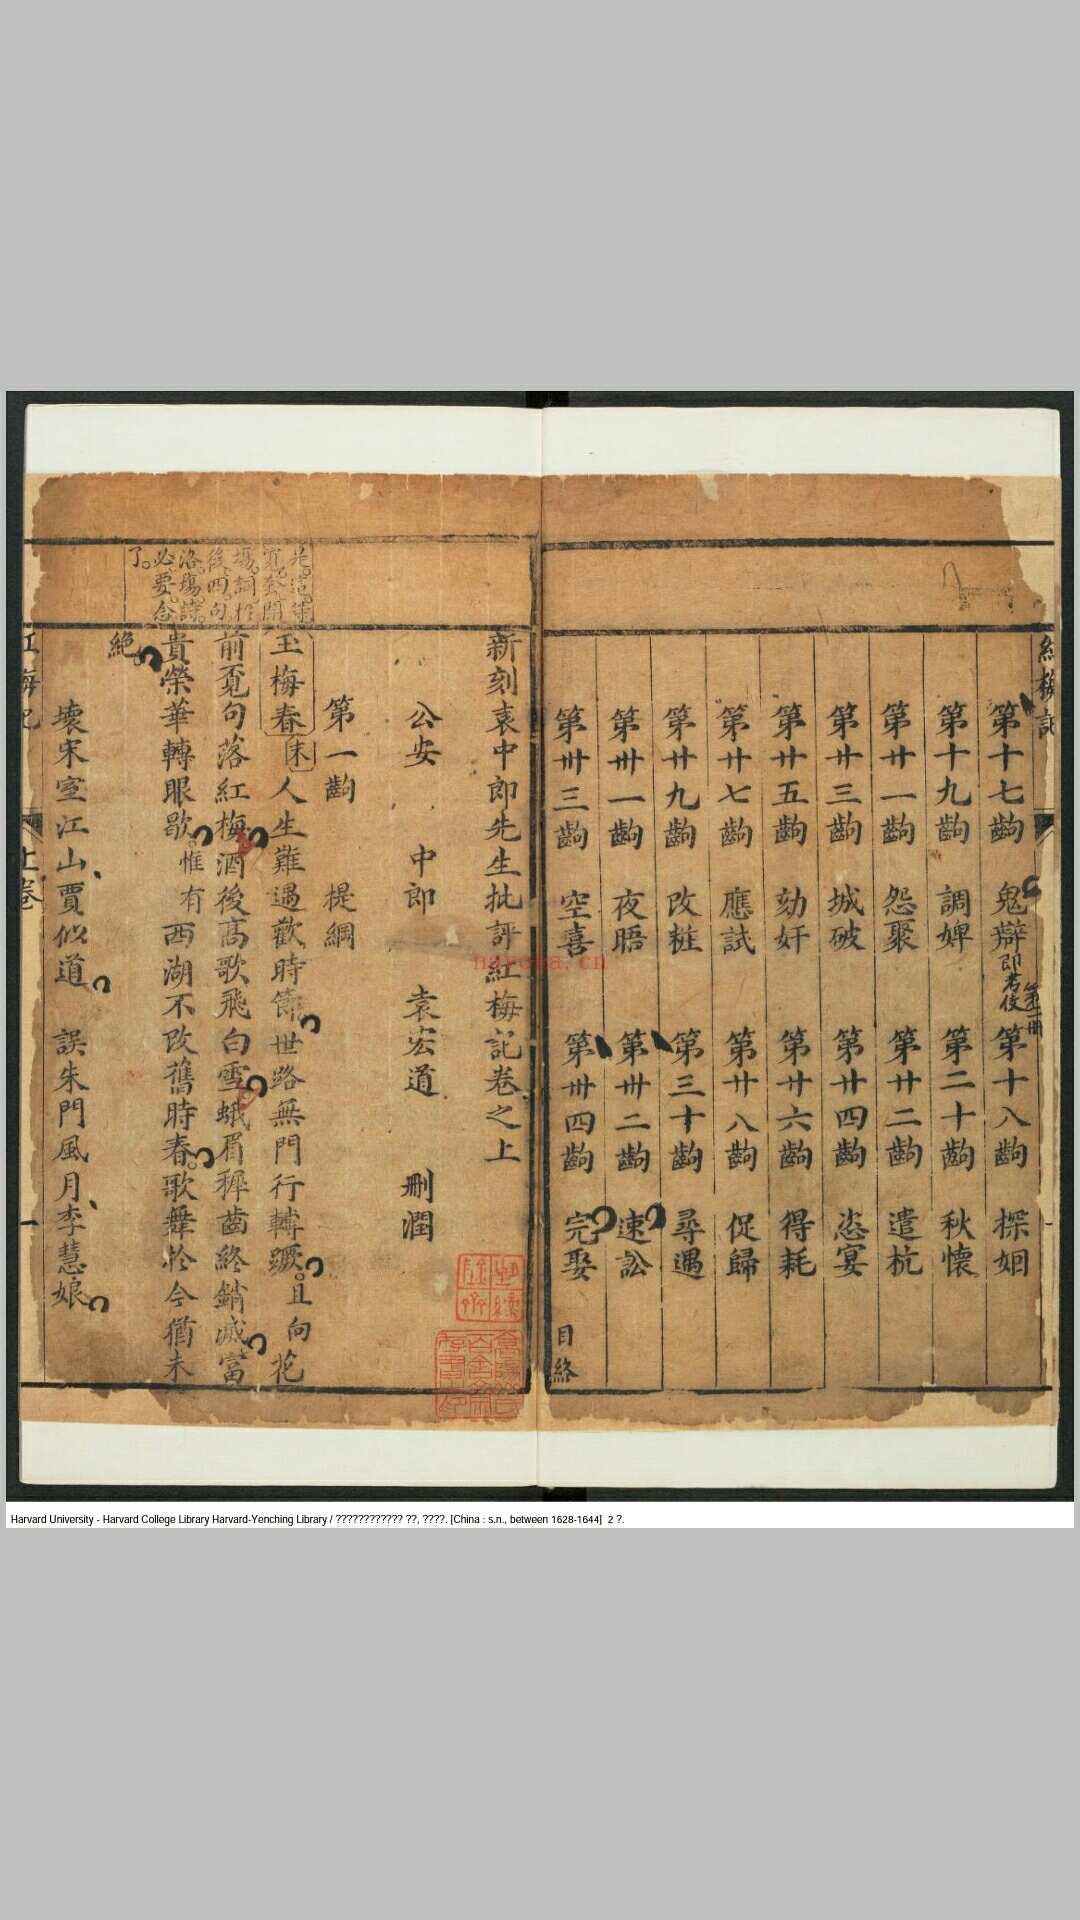 紅梅記
第十七齣　鬼辯　即考伎　第十八齣　探姻
第十九齣　調婢　第二十齣　秋懷
第廿一齣　怨聚　第廿二齣　遣杭
第廿三齣　城破　第廿四齣　恣宴
第廿五齣　劾奸　第廿六齣　得耗
第廿七齣　應試　第廿八齣　促歸
第廿九齣　改粧　第三十齣　尋遇
第卅一齣　夜晤　第卅二齣　速訟
第卅三齣　空喜　第卅四齣　完娶
目終
新刻袁中郎先生批評紅梅記卷之上
公安　中郎　袁宏道　刪潤
第一齣　提綱
後四句
洛場詩。
必要合
了。
玉梅春 末 人生難遇歡時節世路無門行轉蹶。且向花
前覓句落紅梅酒後高歌飛白雪蛾眉穉齒終銷滅富
貴榮華轉眼歇。惟有西湖不改舊時春。歌舞於今猶未
絕
壞宋室江山賈似道　誤朱門風月李慧娘
紅梅記
上卷
一
nayona.cn
Harvard University - Harvard College Library Harvard-Yenching Library / ???????????? ??, ????. [China : s.n., between 1628-1644] 2 ?.